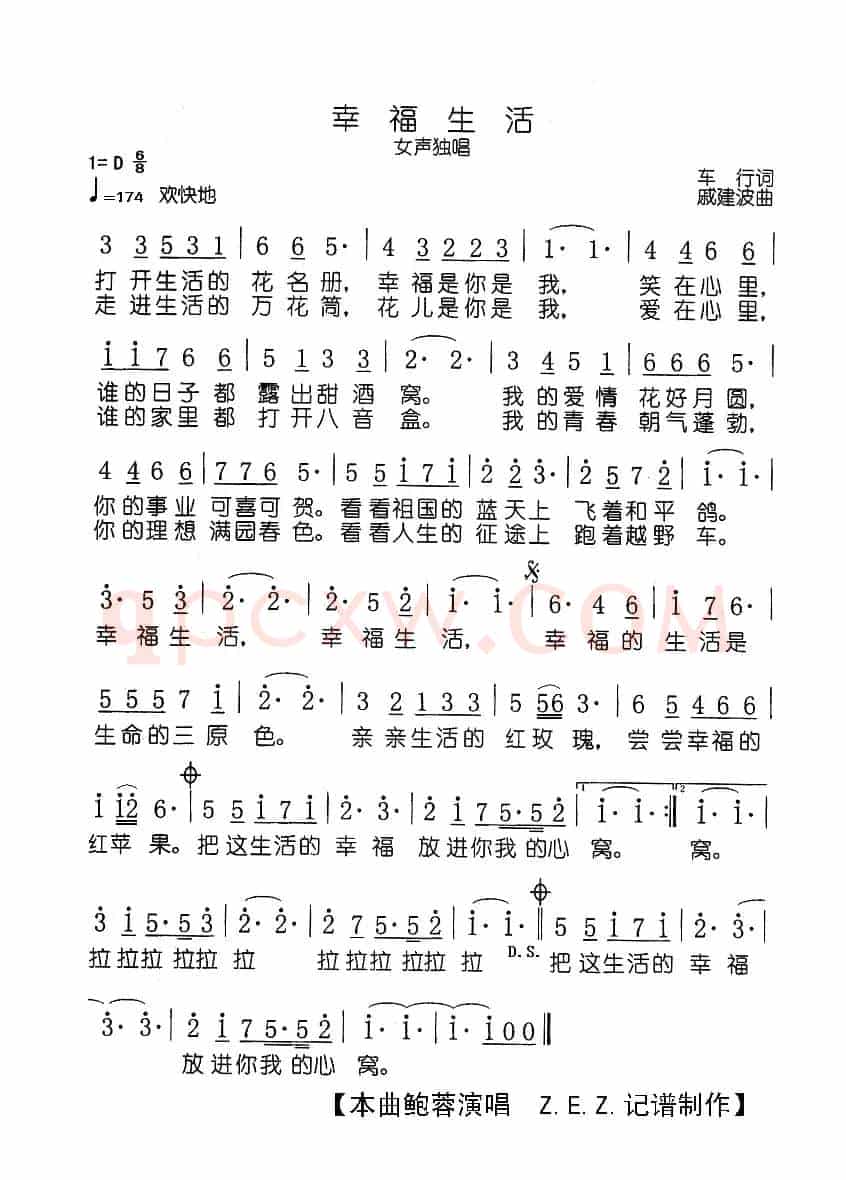 幸福生活
女声独唱
1=D 6/8
♩=174 欢快地
车 行词
戚建波曲
3 3531 | 6 6 5· | 4 3223 | 1̇· 1̇· | 4 46 6 |
打 开生活的 花 名 册, 幸 福是你是 我, 笑 在心 里,
走 进生活的 万 花 筒, 花 儿是你是 我, 爱 在心 里,
1̇ 1̇76 6 | 5 13 3 | 2· 2· | 3 45 1 | 666 5· |
谁的日子都 露出甜 酒 窝。 我 的爱情 花好月 圆,
谁的家里都 打开八 音 盒。 我 的青春 朝气蓬 勃,
4 466 | 776 5· | 5 51̇71̇ | 2̇ 2̇3̇· | 2̇ 572̇ | 1̇· 1̇· |
你的事业 可喜可 贺。看看祖国的 蓝天上 飞着和平 鸽。
你的理想 满园春 色。看看人生的 征途上 跑着越野 车。
3̇· 5 3̇ | 2̇· 2̇· | 2̇· 5 2̇ | 1̇· 1̇· | 6· 4 6 | 1̇ 76· |
幸 福生 活, 幸 福生 活, 幸 福的 生 活是
5557 1̇ | 2̇· 2̇· | 3 2133 | 5 56 3· | 6 5466 |
生命的三 原 色。 亲 亲生活的 红玫 瑰, 尝 尝幸福的
1̇ 1̇2̇ 6· | 5 51̇71̇ | 2̇· 3̇· | 2̇ 1̇75·52̇ | 1̇· 1̇· :‖ 1̇· 1̇· |
红苹 果。把这生活的 幸 福 放进你我的心 窝。 窝。
3̇ 1̇5·53̇ | 2̇· 2̇· | 2̇ 75·52̇ | 1̇· 1̇· ‖ 5 51̇71̇ | 2̇· 3̇· |
拉拉拉拉拉 拉 拉拉拉拉拉 拉 D.S. 把这生活的 幸 福
3̇· 3̇· | 2̇ 1̇75·52̇ | 1̇· 1̇· | 1̇· 1̇00 ‖
放进你我的心 窝。
【本曲鲍蓉演唱 Z.E.Z.记谱制作】
qpcxw.COM